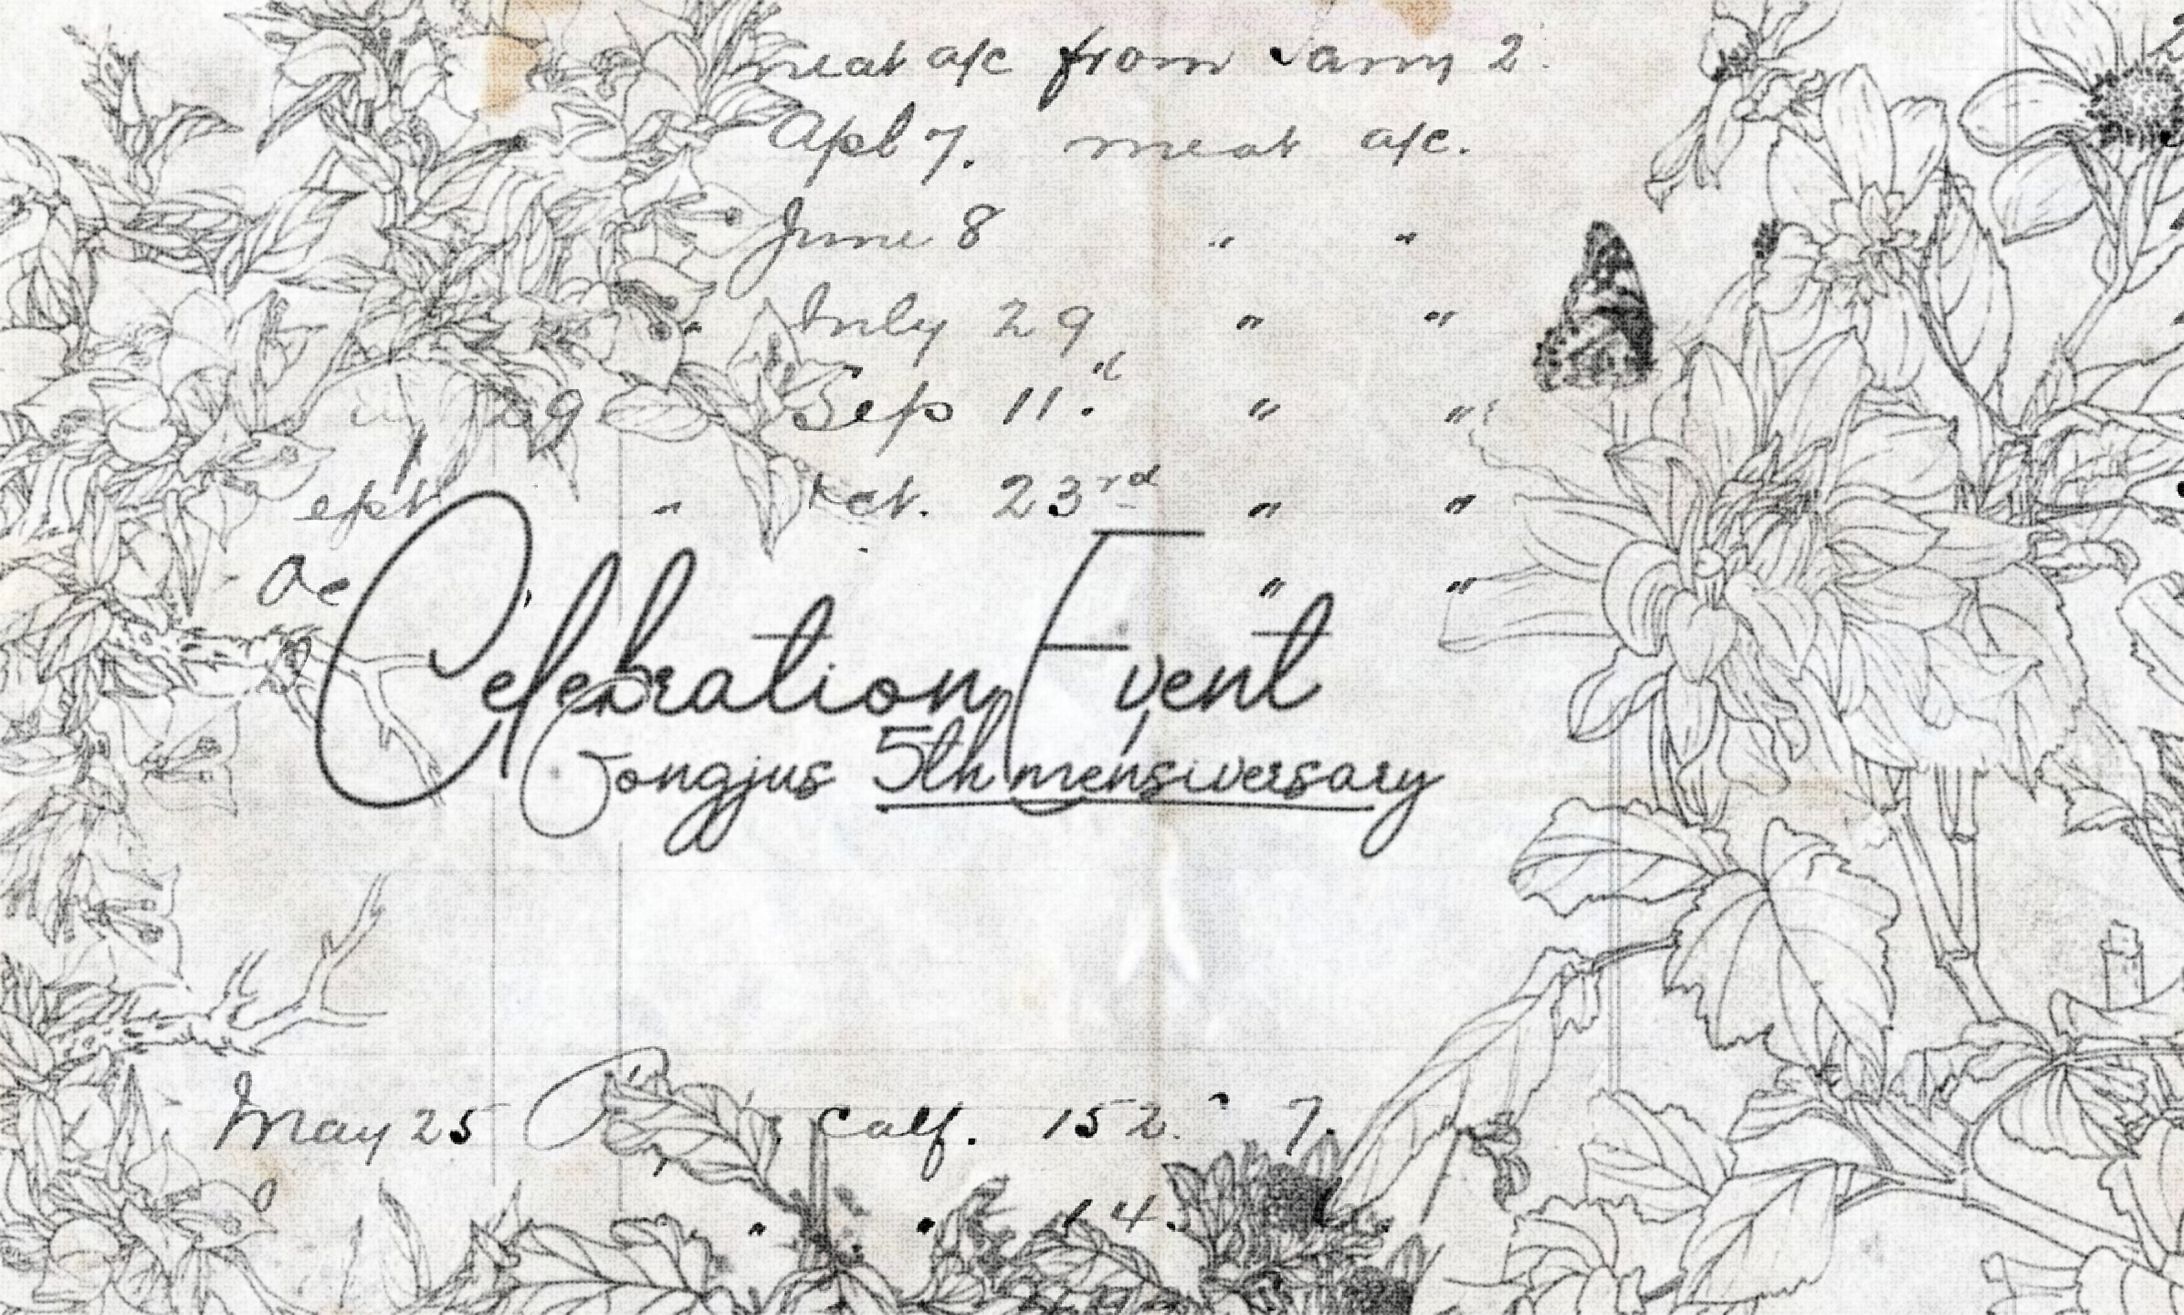 meat a/c from Jany 2.
Apl 7. meat a/c.
June 8 " "
" July 29 " "
29 Sep 11.th " "
ept " Oct. 23rd " "
Oc " "
Celebration Event
Gongjus 5th mensiversary
May 25 calf. 152. 7.
" " 14.